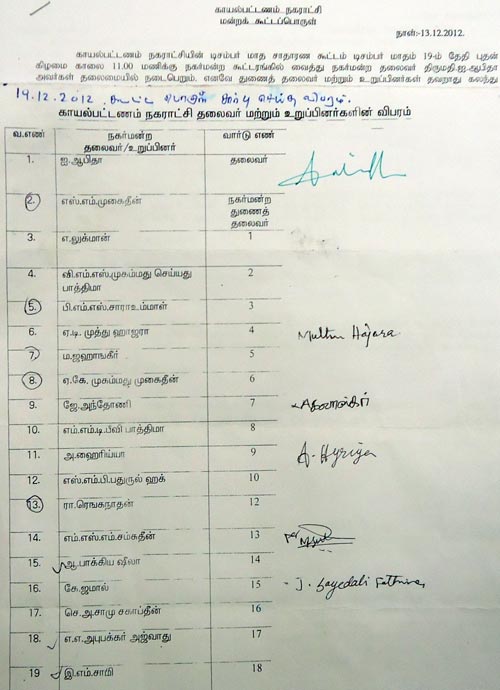 காயல்பட்டணம் நகராட்சி
மன்றக் கூட்டப்பொருள்
நாள்:-13.12.2012.
காயல்பட்டணம் நகராட்சியின் டிசம்பர் மாத சாதாரண கூட்டம் டிசம்பர் மாதம் 19-ம் தேதி புதன்
கிழமை காலை 11.00 மணிக்கு நகர்மன்ற கூட்டரங்கில் வைத்து நகர்மன்ற தலைவர் திருமதி.ஐ.ஆபிதா
அவர்கள் தலைமையில் நடைபெறும். எனவே துணைத் தலைவர் மற்றும் உறுப்பினர்கள் தவறாது கலந்து
14.12.2012 கூட்ட பொருள் சார்பு செய்த விபரம்.
காயல்பட்டணம் நகராட்சி தலைவர் மற்றும் உறுப்பினர்களின் விபரம்
வ.எண் நகர்மன்ற தலைவர்/உறுப்பினர் வார்டு எண்
1. ஐ.ஆபிதா தலைவர்
2. எஸ்.எம்.முகைதீன் நகர்மன்ற துணைத் தலைவர்
3. எ.லுக்மான் 1
4. வி.எம்.எஸ்.முகம்மது செய்யது பாத்திமா 2
5. பி.எம்.எஸ்.சாராஉம்மாள் 3
6. ஏ.டி. முத்து ஹாஜரா 4 Muthu Hajara
7. ம.ஜஹாங்கீர் 5
8. ஏ.கே. முகம்மது முகைதீன் 6
9. ஜே.அந்தோணி 7
10. எம்.எம்.டி.பீவி பாத்திமா 8
11. அ.ஹைரிய்யா 9 A. Hyriya
12. எஸ்.எம்.பி.பதுருல் ஹக் 10
13. ரா.ரெங்கநாதன் 12
14. எம்.எஸ்.எம்.சம்சுதீன் 13
15. ஆ.பாக்கிய ஷீலா 14
16. கே.ஜமால் 15 J. Sayedali Fathima
17. செ.அ.சாமு சகாப்தீன் 16
18. எ.எ.அபுபக்கர் அஜ்வாது 17
19 இ.எம்.சாமி 18